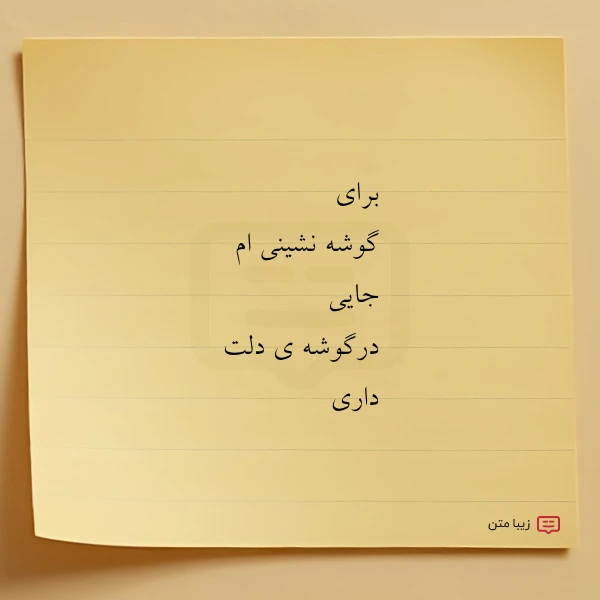 برای
گوشه نشینی ام
جایی
درگوشه ی دلت
داری
زیبا متن